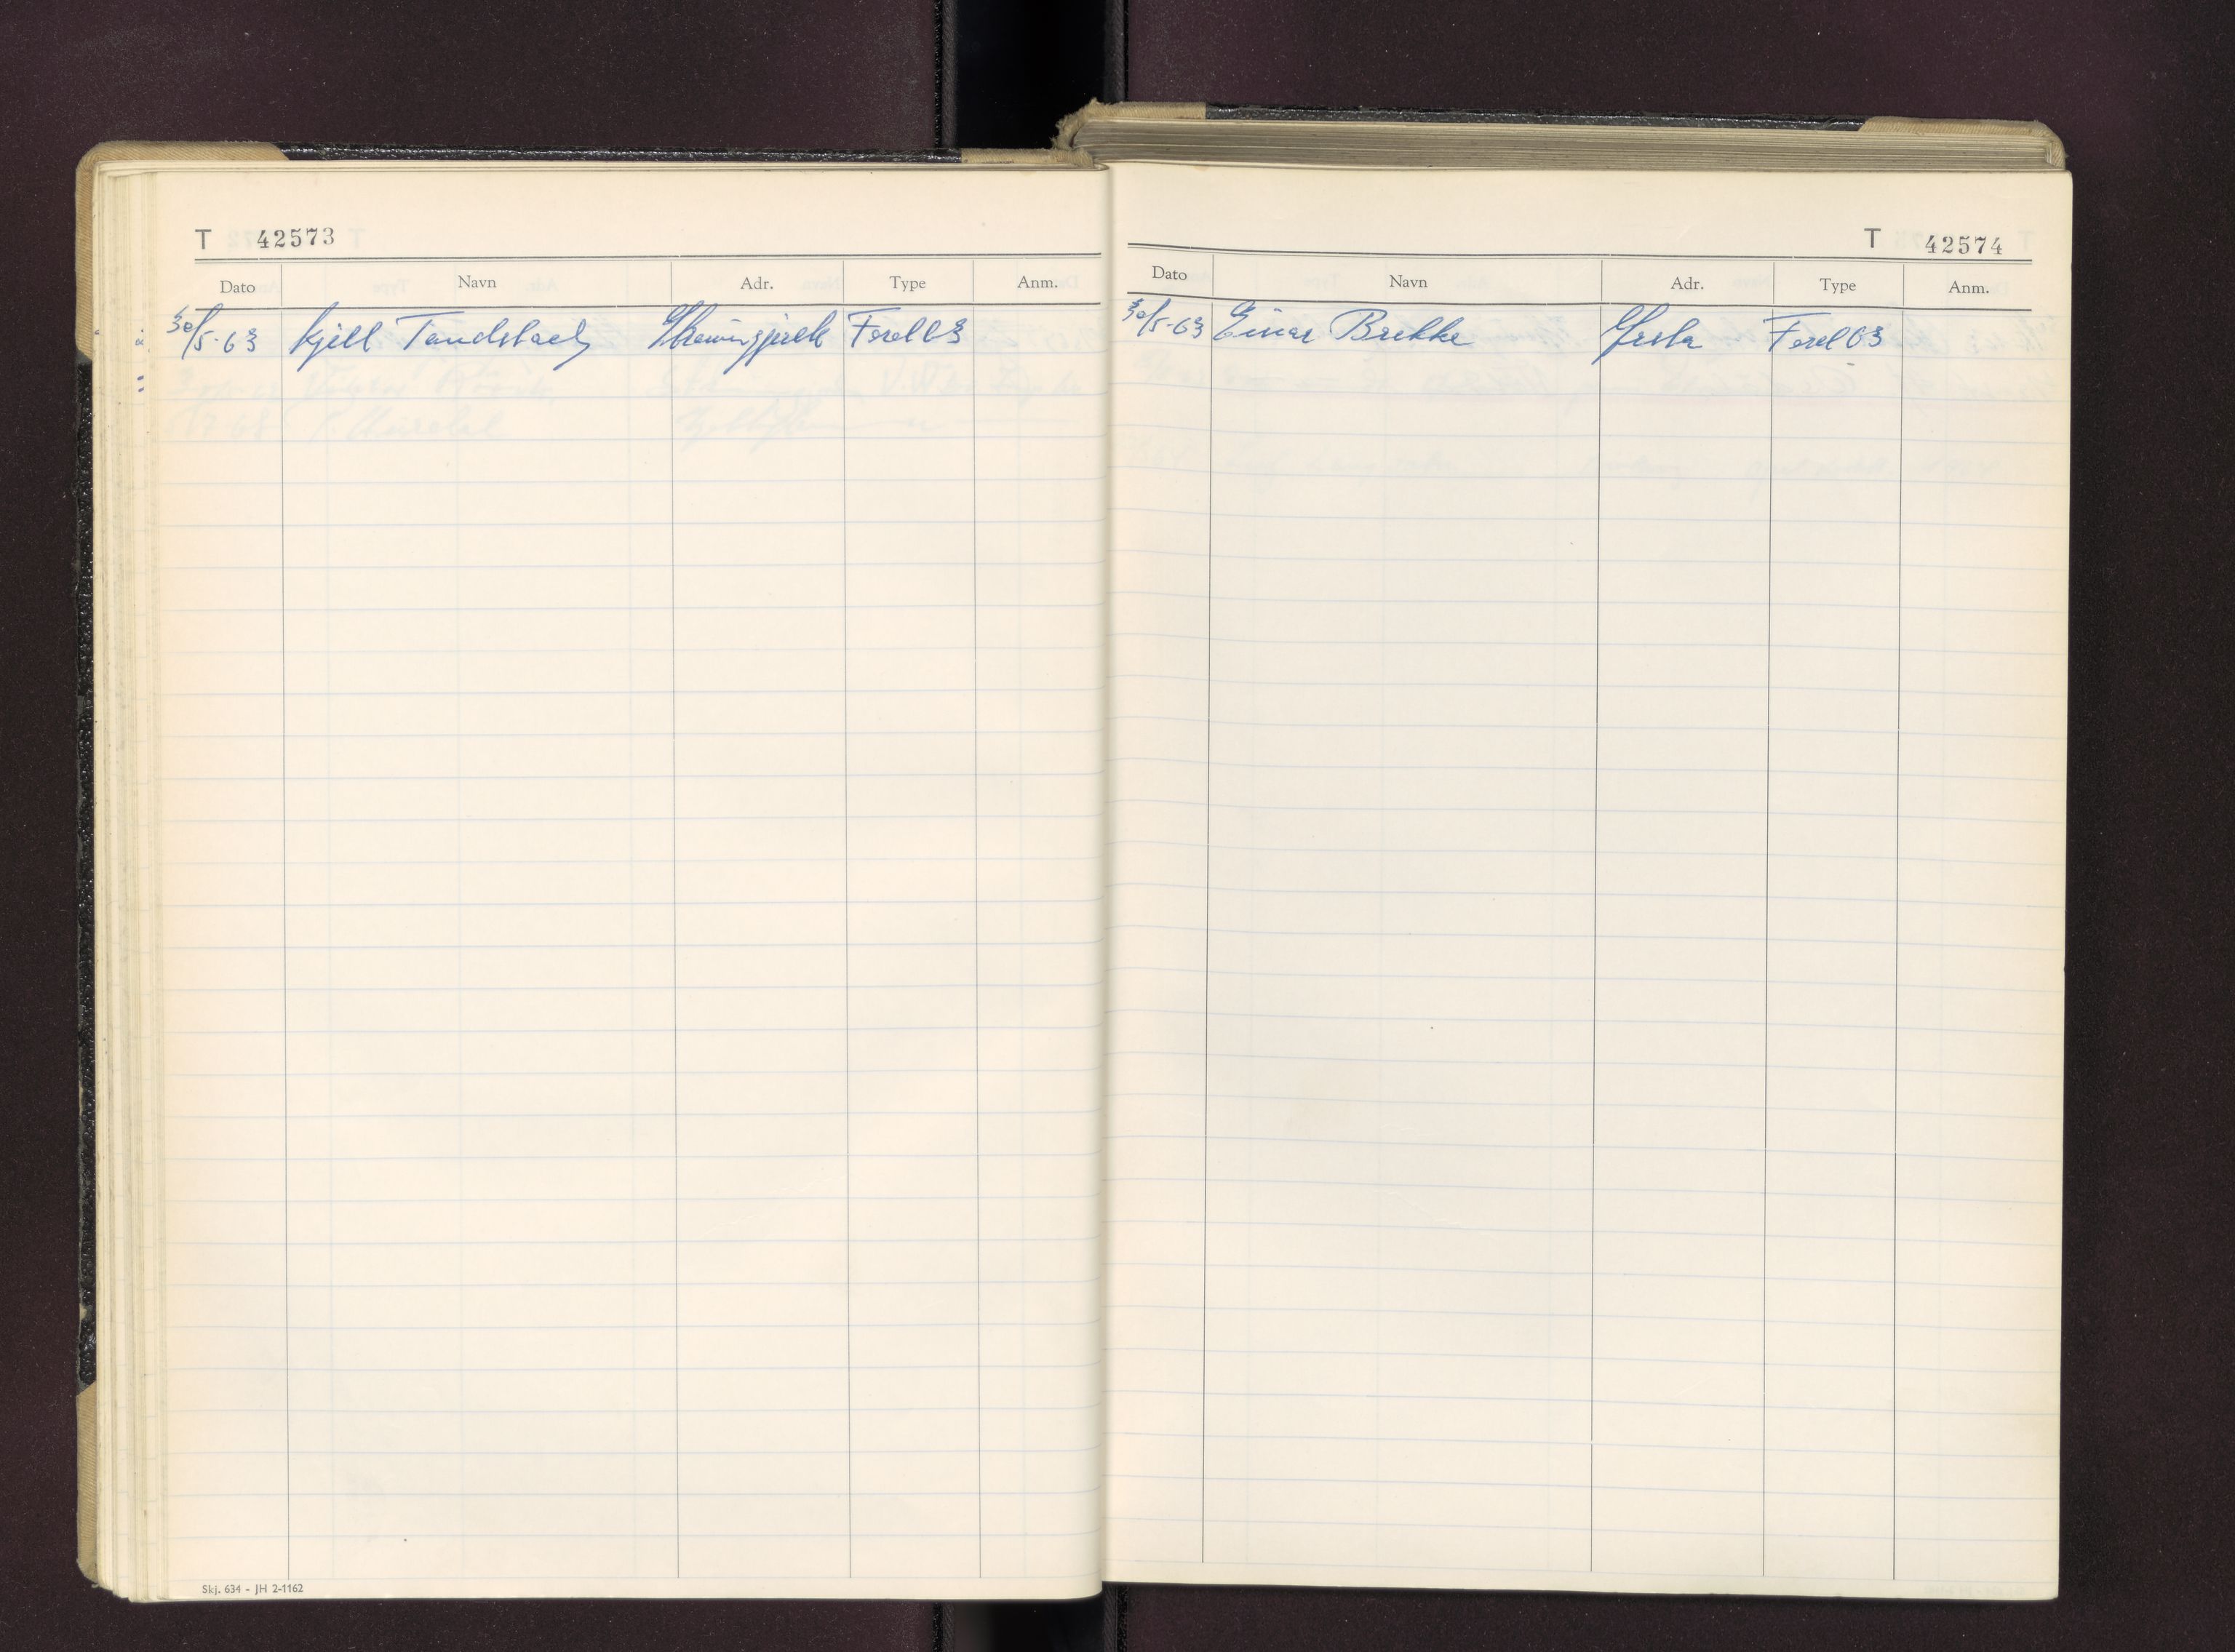 T 42573
Dato Navn Adr. Type Anm.
30/5-63 Kjell Tandstad Ford 63
Skj. 634 - JH 2-1162
T 42574
Dato Navn Adr. Type Anm.
30/5-63 Einar Brekke Ørsta Ford 63